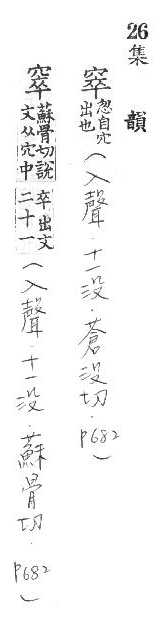 26
集韻
窣 忽自穴出也 (入聲.十一没.蒼没切.P682)
窣 蘇骨切說文从穴中卒出文二十一 (入聲.十一没.蘇骨切.P682)